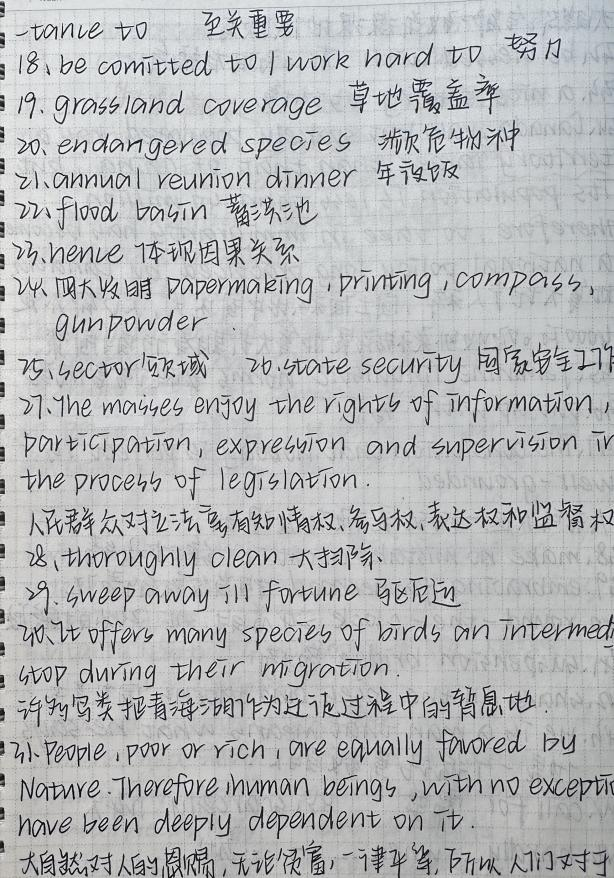 -tance to 至关重要
18、be comitted to / work hard to 努力
19. grassland coverage 草地覆盖率
20. endangered species 濒危物种
21. annual reunion dinner 年夜饭
22. flood basin 蓄洪池
23. hence 体现因果关系
24. 四大发明 papermaking, printing, compass,
gunpowder
25、sector 领域 26. state security 国家安全工作
27. The masses enjoy the rights of information,
participation, expression and supervision in
the process of legislation.
人民群众对立法享有知情权、参与权、表达权和监督权
28、thoroughly clean 大扫除、
29. sweep away ill fortune 驱厄运
30. It offers many species of birds an intermedi
stop during their migration.
许多鸟类把青海湖作为迁徙过程中的暂息地.
31. People, poor or rich, are equally favored by
Nature. Therefore, human beings, with no exceptio
have been deeply dependent on it.
大自然对人的恩赐, 无论贫富, 一律平等, 所以人们对于